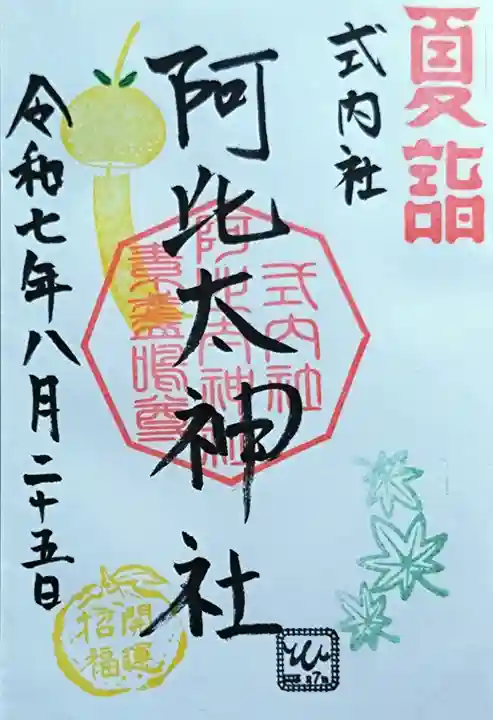 夏詣
式内社
阿比太神社
式内社
阿比太神社
素盞嗚尊
令和七年八月二十五日
開運
招福